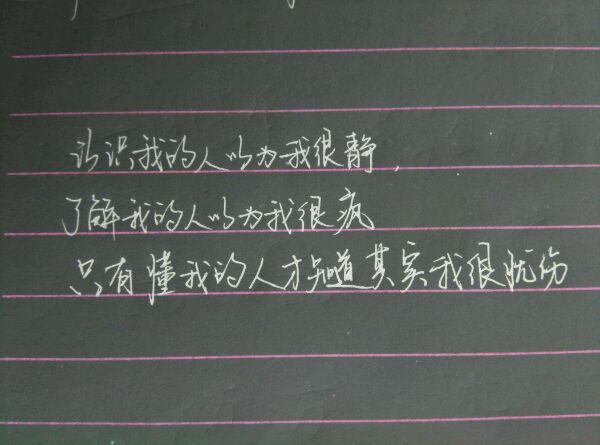 认识我的人以为我很静,
了解我的人以为我很疯
只有懂我的人才知道其实我很忧伤